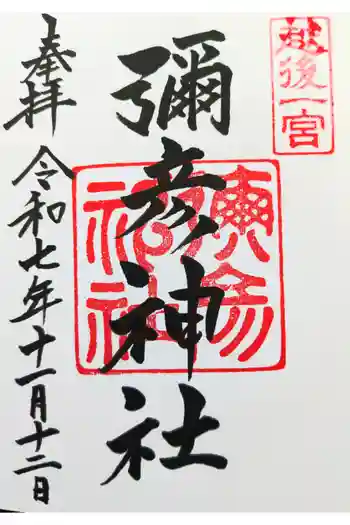 越後一宮
彌彦神社
奉拝
令和七年十一月十二日